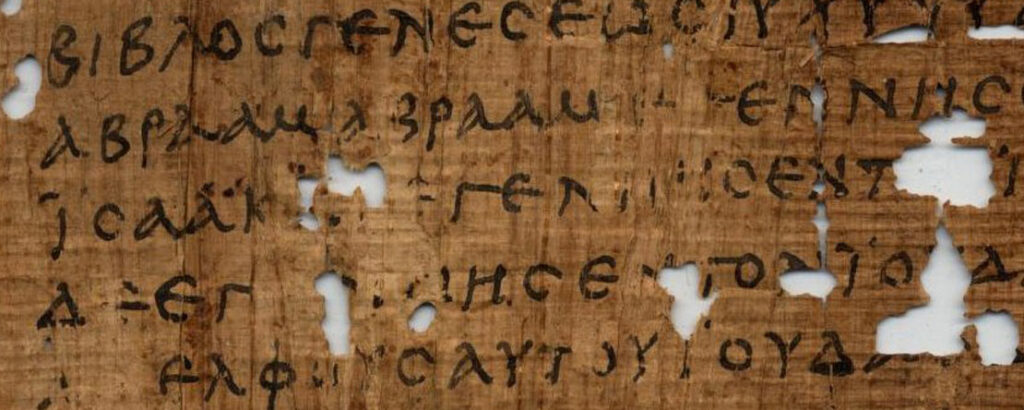 ΒΙΒΛΟϹ ΓΕΝΕϹΕΩϹ ΙΥ ΧΥ ΥΥ
ΑΒΡΑΑΜ ΑΒΡΑΑΜ ΕΓΕΝΝΗϹΕ
ΪϹΑΑΚ ΕΓΕΝΝΗϹΕΝ Τ
ΔΕ ΕΓΕΝΝΗϹΕΝ ΤΟΝ ΪΟΥΔΑ
ΕΛΦΟΥϹ ΑΥΤΟΥ ΪΟΥΔΑ